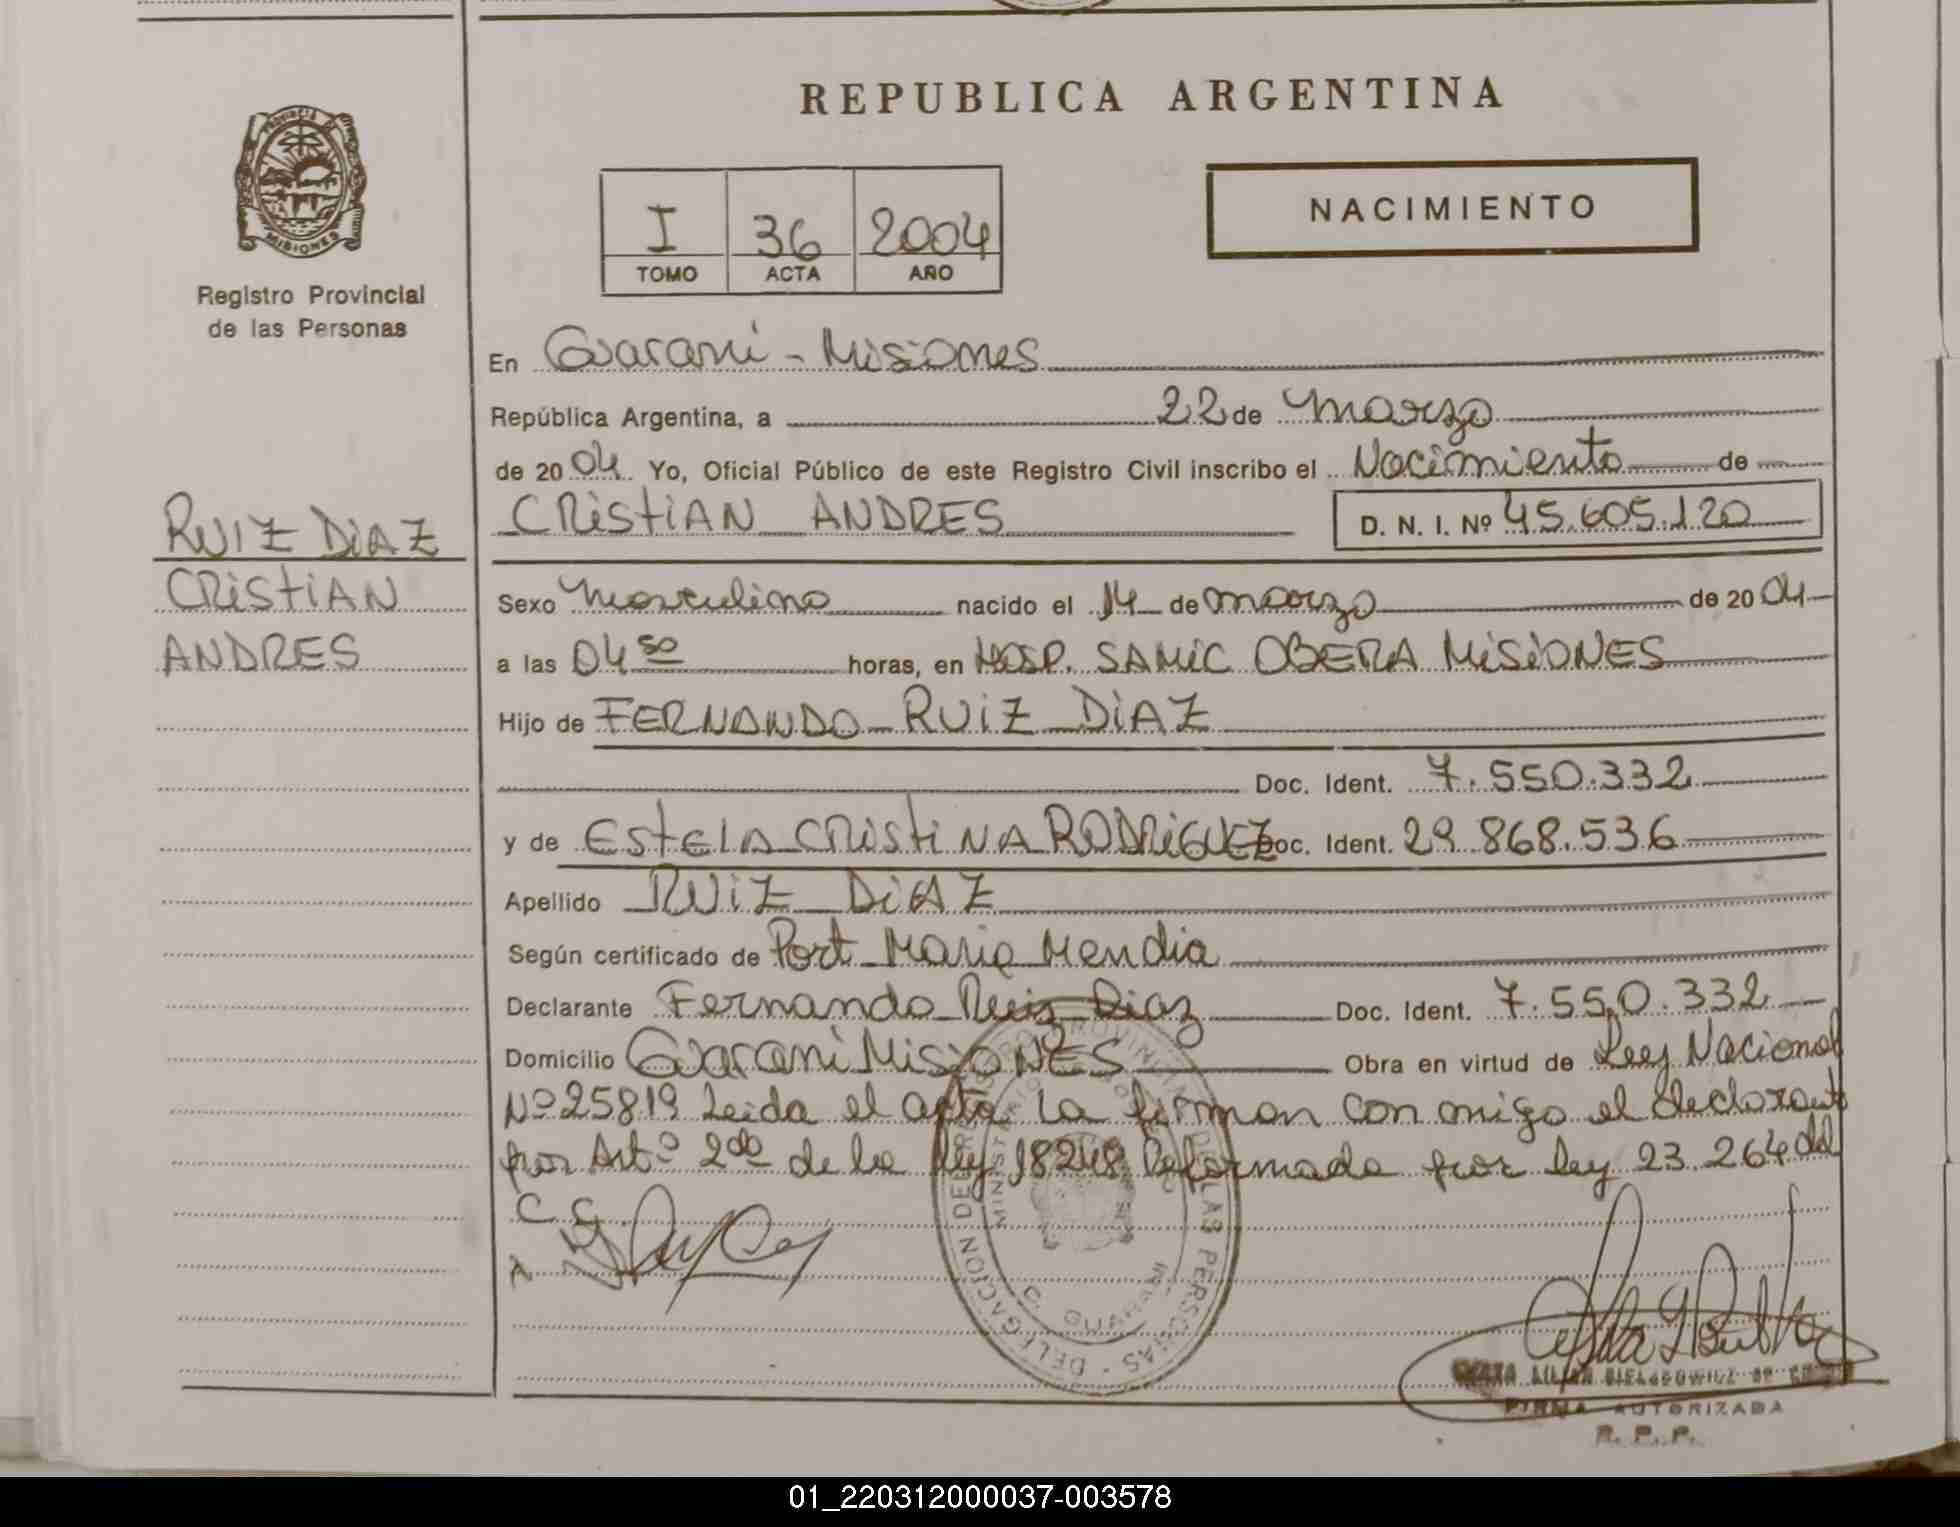 REPUBLICA ARGENTINA
PROVINCIA DE
MISIONES
Registro Provincial
de las Personas
I 36 2004
TOMO ACTA AÑO
NACIMIENTO
En Guaraní - Misiones
República Argentina, a 22 de marzo
de 20 04 Yo, Oficial Público de este Registro Civil inscribo el Nacimiento de
CRISTIAN ANDRES D. N. I. Nº 45.605.120
RUIZ DIAZ
CRISTIAN
ANDRES
Sexo Masculino nacido el 14 de marzo de 20 04
a las 04 50 horas, en HOSP. SAMIC OBERA MISIONES
Hijo de FERNANDO RUIZ DIAZ
Doc. Ident. 7.550.332
y de ESTELA CRISTINA RODRIGUEZ Doc. Ident. 29.868.536
Apellido RUIZ DIAZ
Según certificado de Port Maria Mendia
Declarante Fernando Ruiz Diaz Doc. Ident. 7.550.332
Domicilio Guaraní MISIONES Obra en virtud de Ley Nacional
Nº 25819 Leida el acta La firman con migo el declarante
por Artº 2do de la ley 18248 Reformada por ley 23.264 del
C. C.
MINISTERIO
DE LAS PERSONAS - DELEGACION
GUARANI
FIRMA AUTORIZADA
R. P. P.
01_220312000037-003578